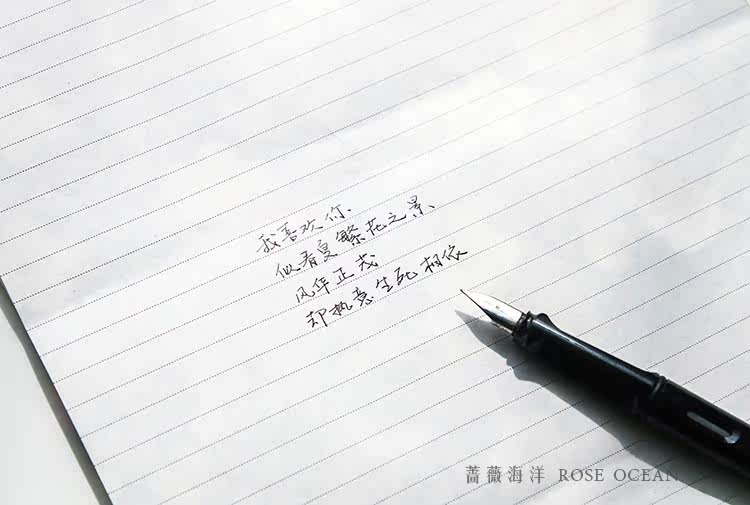 我喜欢你、
似看夏繁花之景、
风华正茂
却执意生死相依
蔷薇海洋 ROSE OCEAN